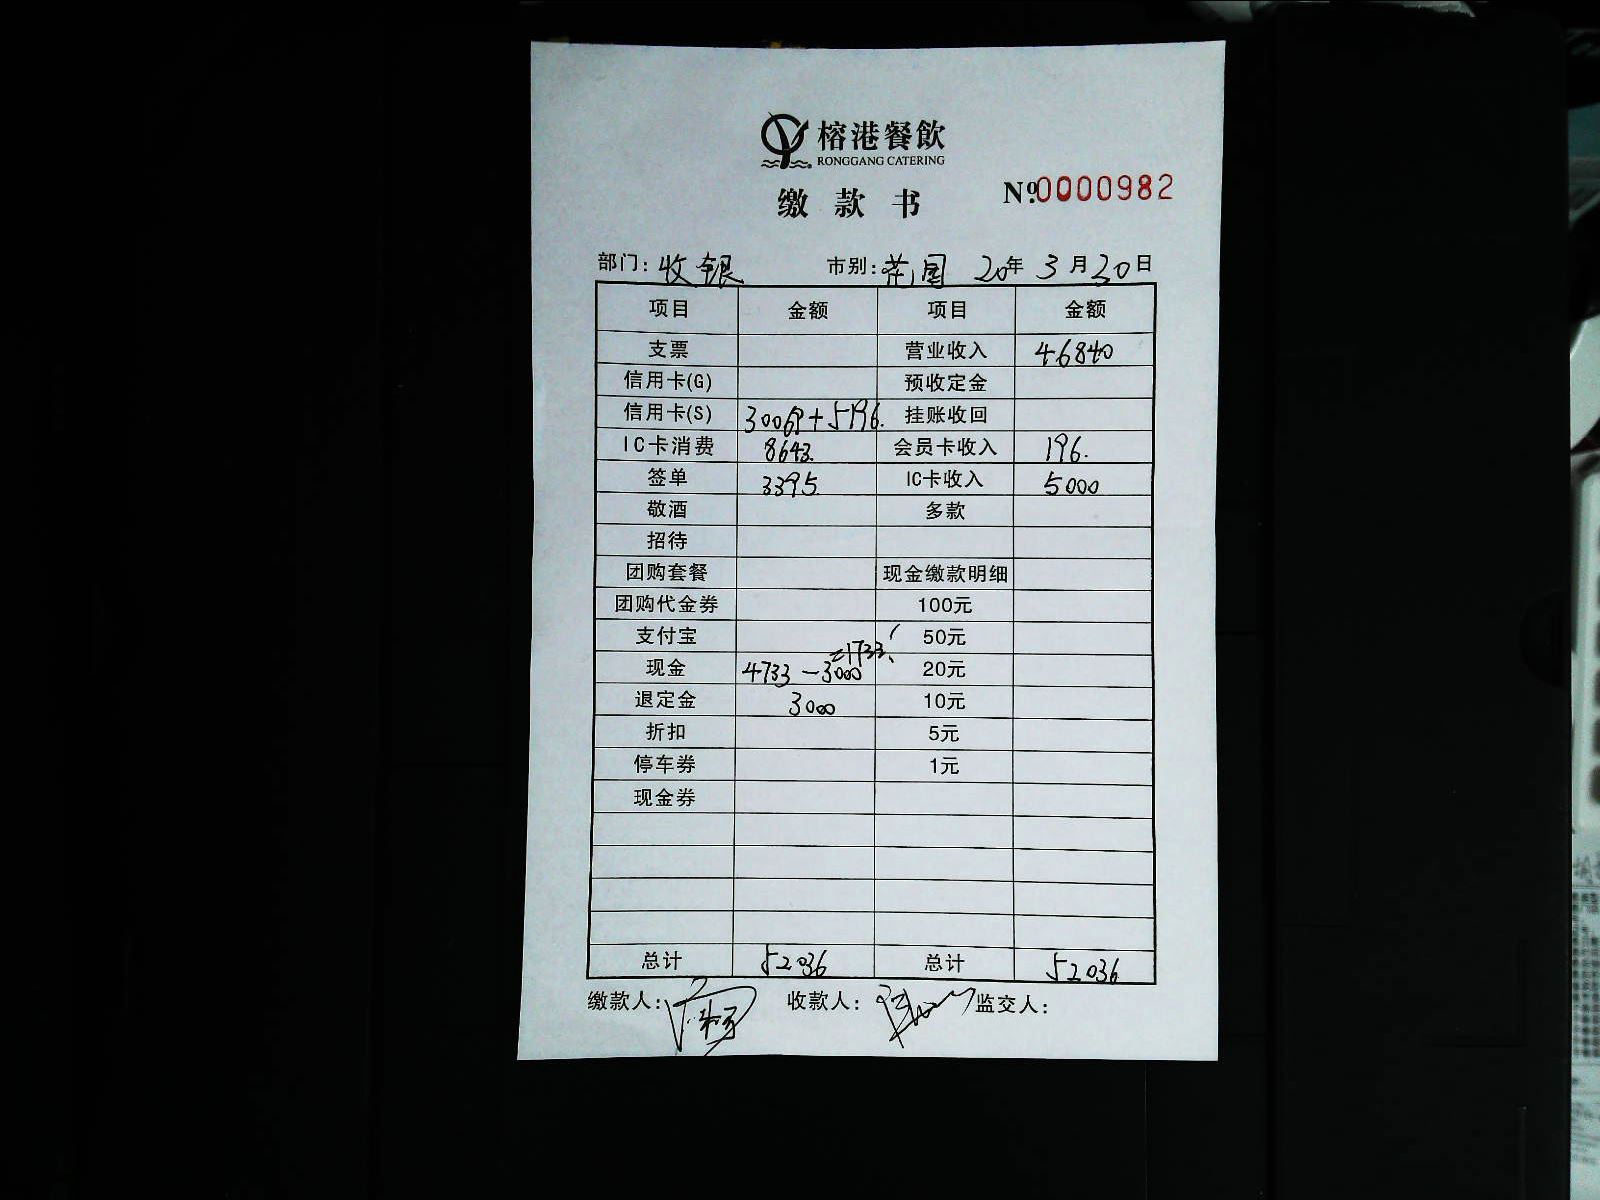 榕港餐飲
RONGGANG CATERING
缴款书 №0000982
部门：收银 市别： 20年3月30日
项目 金额 项目 金额
支票 营业收入 46840
信用卡(G) 预收定金
信用卡(S) 30069+5196. 挂账收回
IC卡消费 8643. 会员卡收入 196.
签单 3395. IC卡收入 5000
敬酒 多款
招待
团购套餐 现金缴款明细
团购代金券 100元
支付宝 50元
现金 4733-3000=1733. 20元
退定金 3000 10元
折扣 5元
停车券 1元
现金券
总计 52036 总计 52036
缴款人： 收款人： 监交人：